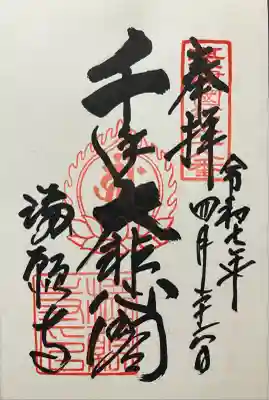 奉拝
令和七年四月二十六日
千手大悲閣
満願寺